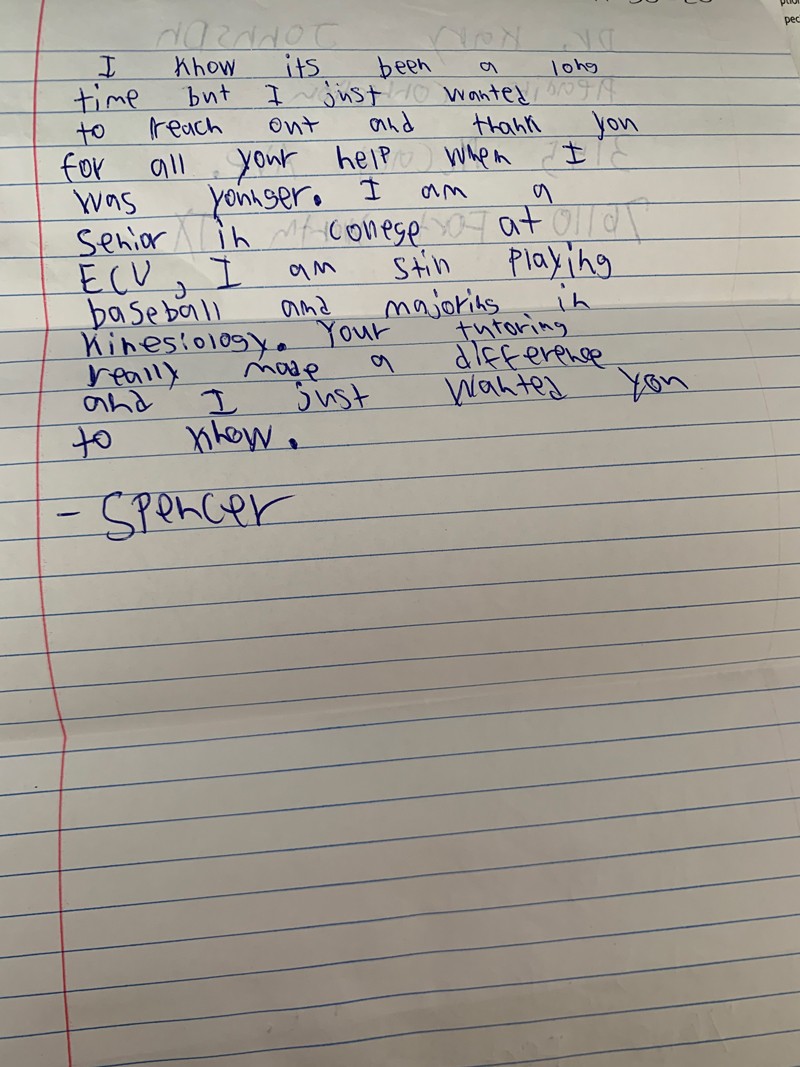 I know its been a long
time but I just wanted
to reach out and thank you
for all your help when I
was younger. I am a
senior in college at
ECU, I am still playing
baseball and majoring in
Kinesiology. Your tutoring
really made a difference
and I just wanted you
to know.
- Spencer